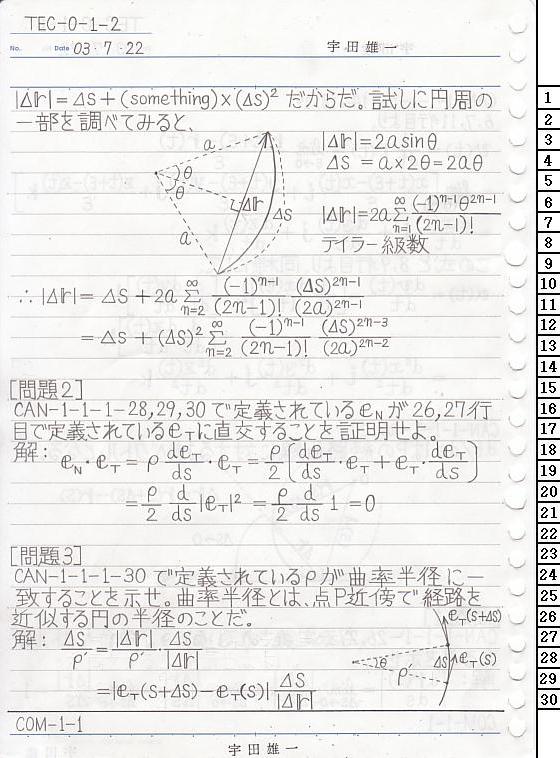 TEC-0-1-2
No. Date 03・7・22 宇田雄一
|Δ𝕣| = ΔS + (something)×(ΔS)² だからだ。試しに円周の
一部を調べてみると、
a θ θ a Δ𝕣 ΔS
|Δ𝕣| = 2a sinθ
ΔS = a×2θ = 2aθ
|Δ𝕣| = 2a Σ_{n=1}^{∞} (-1)^{n-1}θ^{2n-1}/(2n-1)!
テイラー級数
∴ |Δ𝕣| = ΔS + 2a Σ_{n=2}^{∞} (-1)^{n-1}/(2n-1)! (ΔS)^{2n-1}/(2a)^{2n-1}
= ΔS + (ΔS)² Σ_{n=2}^{∞} (-1)^{n-1}/(2n-1)! (ΔS)^{2n-3}/(2a)^{2n-2}
[問題2]
CAN-1-1-1-28,29,30で定義されている𝕖_N が26,27行
目で定義されている𝕖_T に直交することを証明せよ。
解: 𝕖_N・𝕖_T = ρ d𝕖_T/ds・𝕖_T = ρ/2 [d𝕖_T/ds・𝕖_T + 𝕖_T・d𝕖_T/ds]
= ρ/2 d/ds |𝕖_T|² = ρ/2 d/ds 1 = 0
[問題3]
CAN-1-1-1-30で定義されているρが曲率半径に一
致することを示せ。曲率半径とは、点P近傍で経路を
近似する円の半径のことだ。
解: ΔS/ρ' = |Δ𝕣|/ρ'・ΔS/|Δ𝕣|
= |𝕖_T(S+ΔS) − 𝕖_T(S)| ΔS/|Δ𝕣|
𝕖_T(S+ΔS)
θ ρ' ΔS 𝕖_T(S)
COM-1-1
宇田雄一
1
2
3
4
5
6
7
8
9
10
11
12
13
14
15
16
17
18
19
20
21
22
23
24
25
26
27
28
29
30